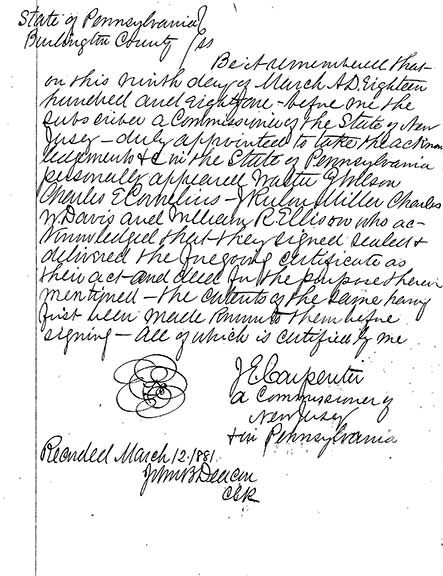 State of Pennsylvania }
Burlington County } ss
Be it remembered that
on this ninth day of March A.D. Eighteen
hundred and Eighty one - before me the
subscriber a Commissioner of the State of New
Jersey - duly appointed to take the acknow
ledgements &c in the State of Pennsylvania
personally appeared Walter G Wilson
Charles E Cornelius - J Rulon Miller Charles
W. Davis and William R. Ellison who ac-
knowledged that they signed sealed &
delivered the foregoing certificate as
their act and deed for the purposes therein
mentioned - the contents of the same having
first been made known to them before
signing - All of which is certified by me
J E Carpenter
a Commissioner of
New Jersey
& in Pennsylvania
Recorded March 12. 1881
John B Deacon
Clk